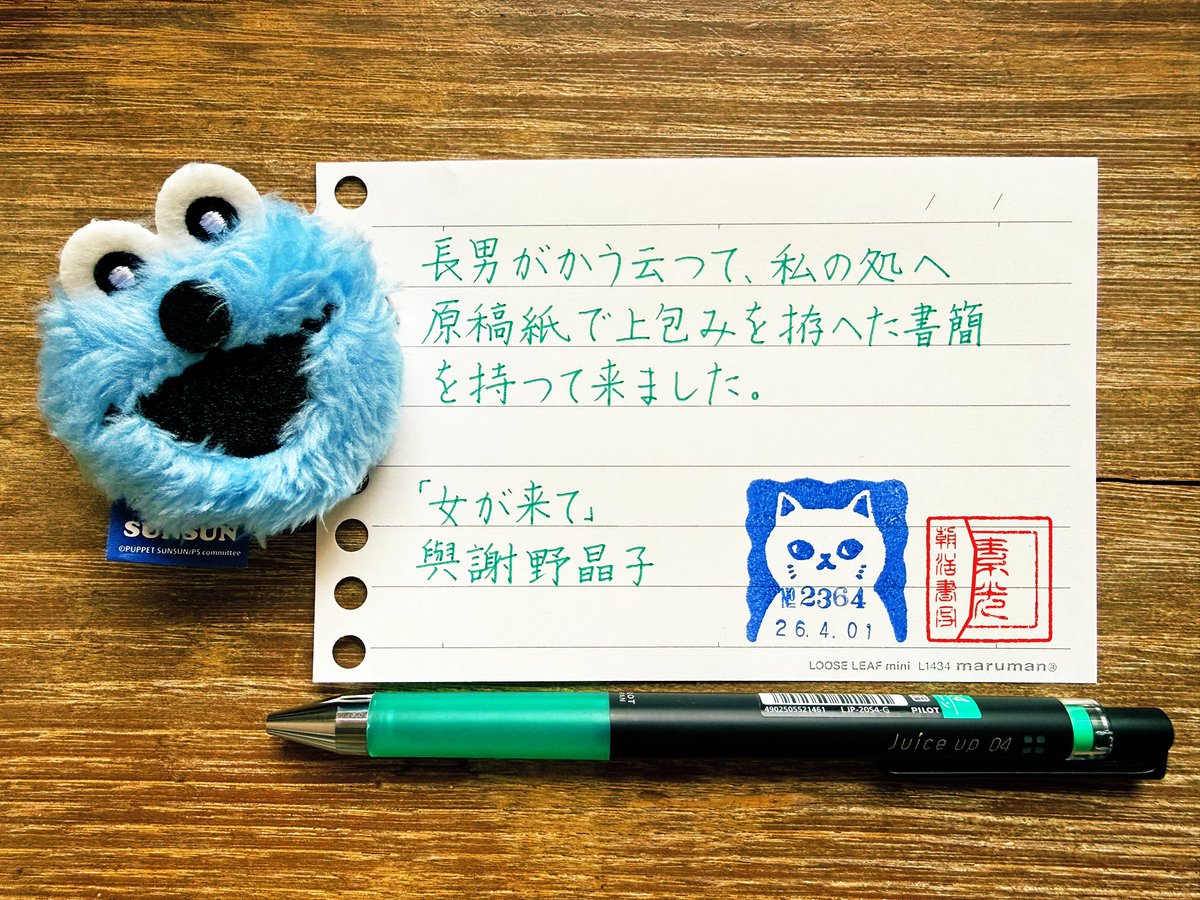 長男がかう云つて、私の処へ
原稿紙で上包みを拵へた書簡
を持つて来ました。
「女が来て」
與謝野晶子
№2364
26.4.01
朝活書写
素光
LOOSE LEAF mini L1434 maruman
SUNSUN
©PUPPET SUNSUN/PS committee
4902505521461 LJP-20S4-G
PILOT
Juice up 04